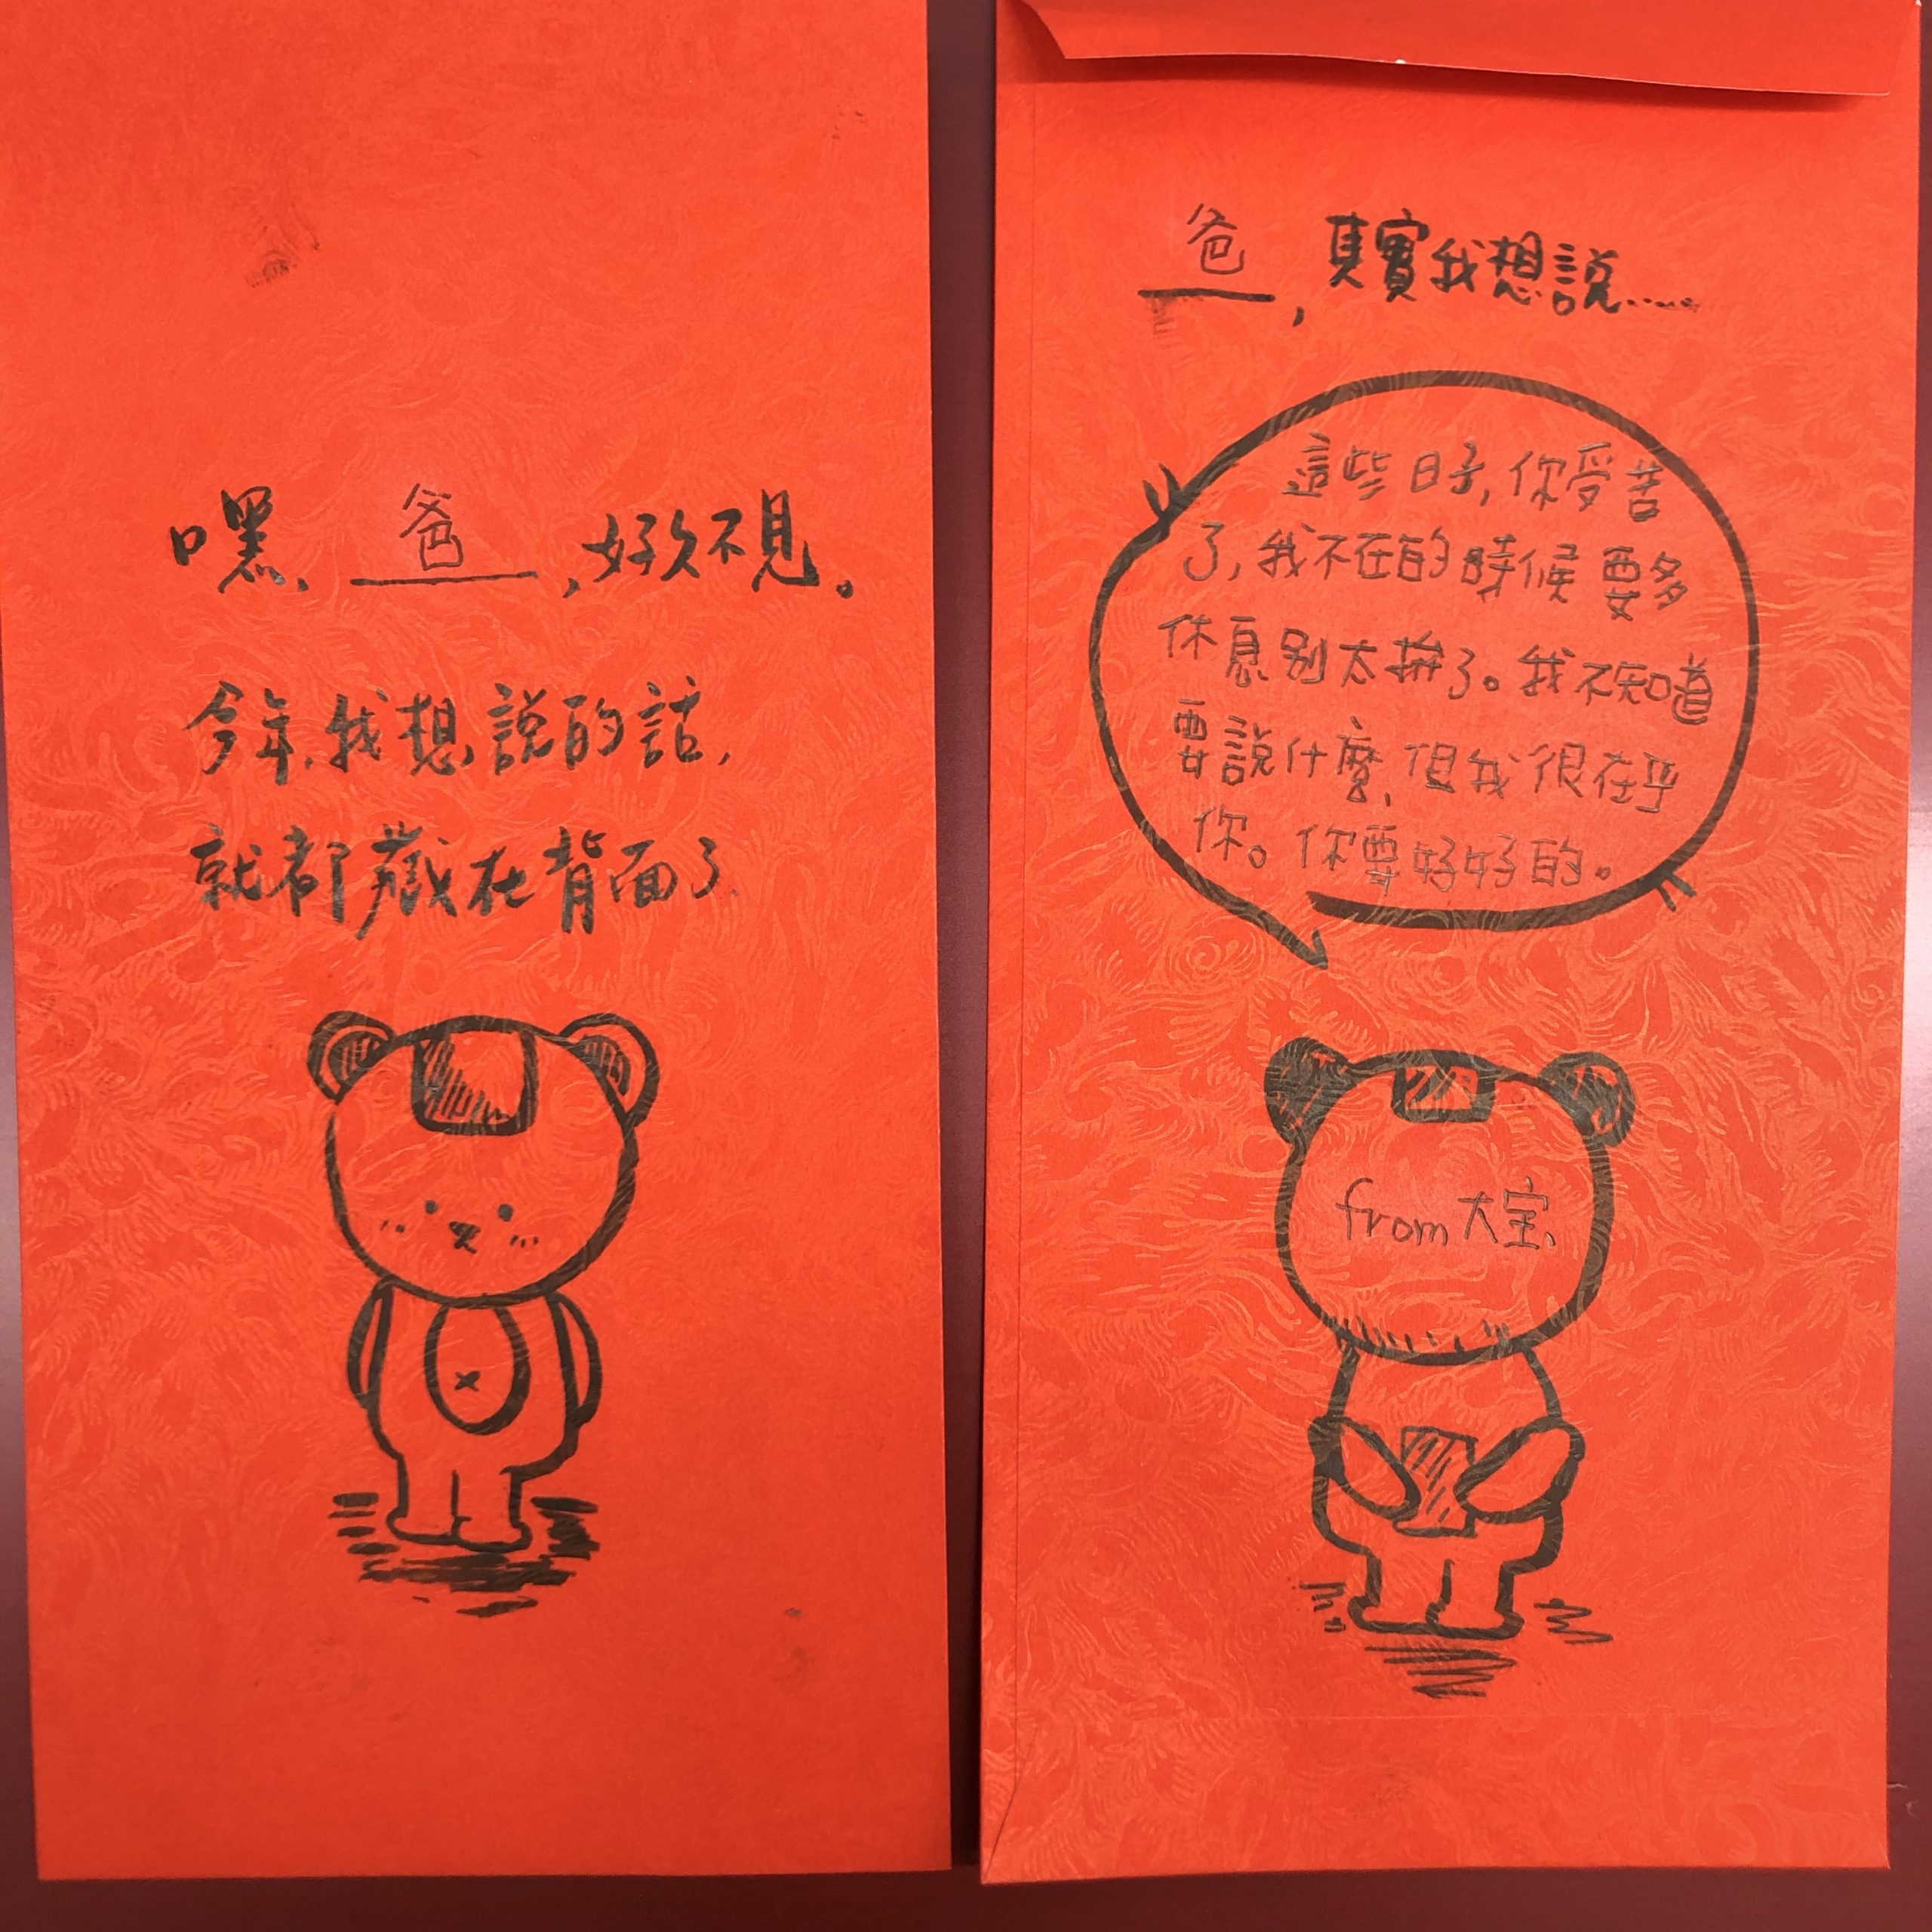 嘿、爸,好久不見。
今年,我想說的話,
就都藏在背面了.
爸,其實我想說......
這些日子,你受苦
了,我不在的時候要多
休息別太拚了。我不知道
要說什麼,但我很在乎
你。你要好好的。
from大宝